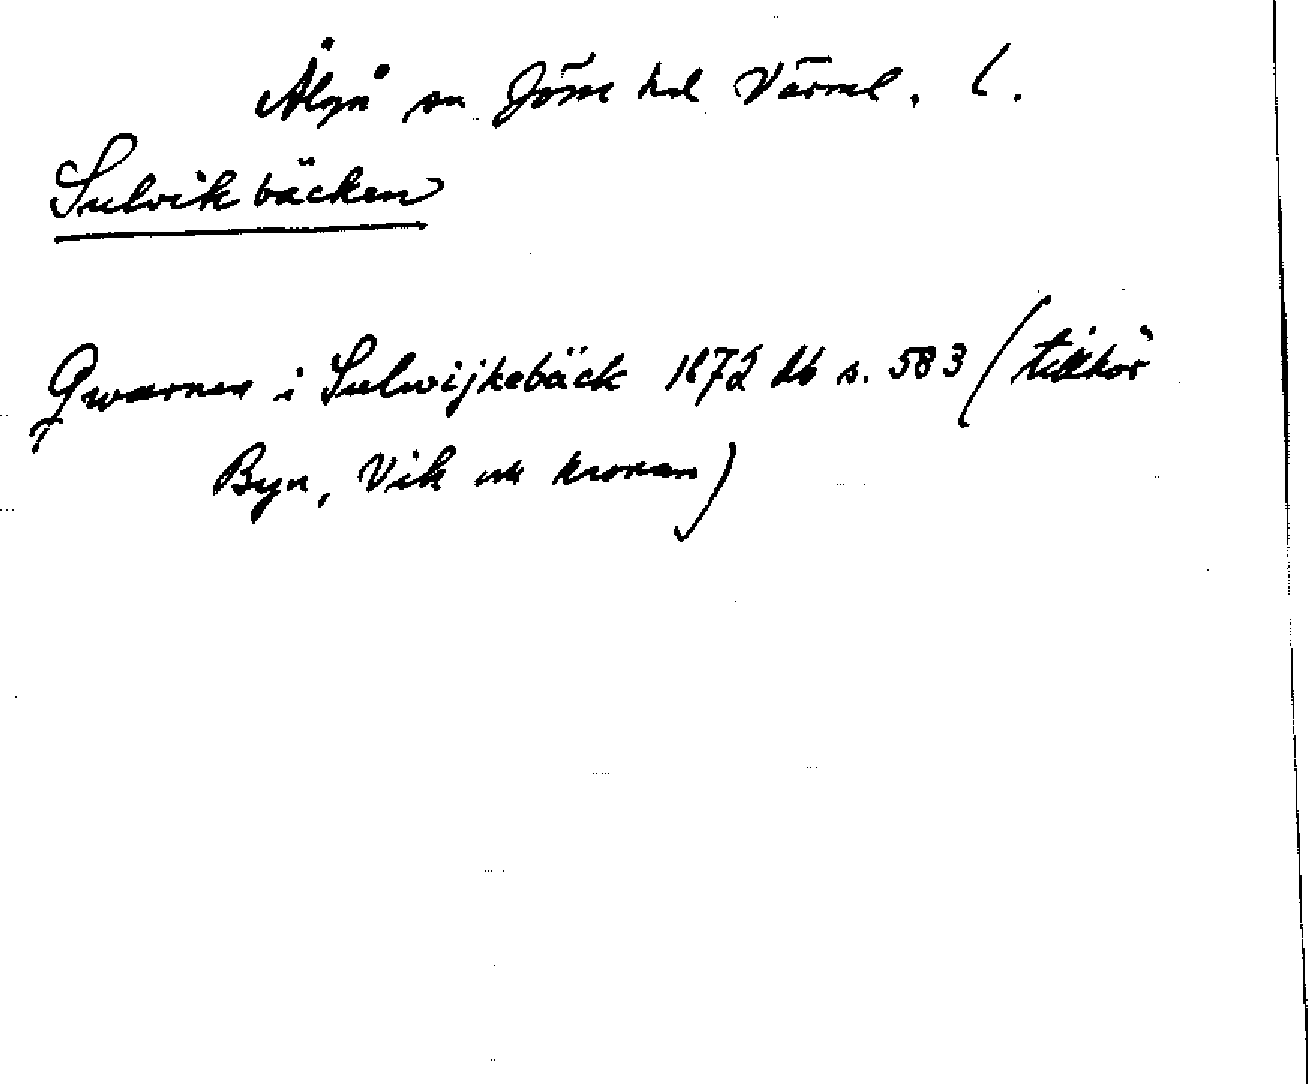 Älgå sn Jösse hd Värml. l.
Sulvikbäcken
Qwarnen i Sulwijkebäck 1872 db s. 583 (tillhör
Byn, Vik och kronan)